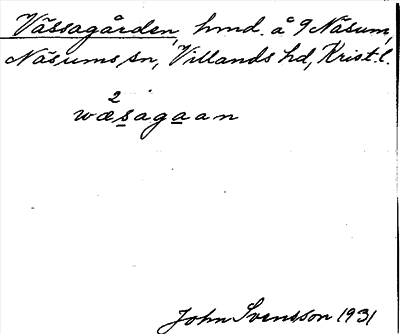 Vässagården, hmd. å 9 Näsum,
Näsums sn, Villands hd, Krist. l.
2
wæsagaan
John Svensson 1931